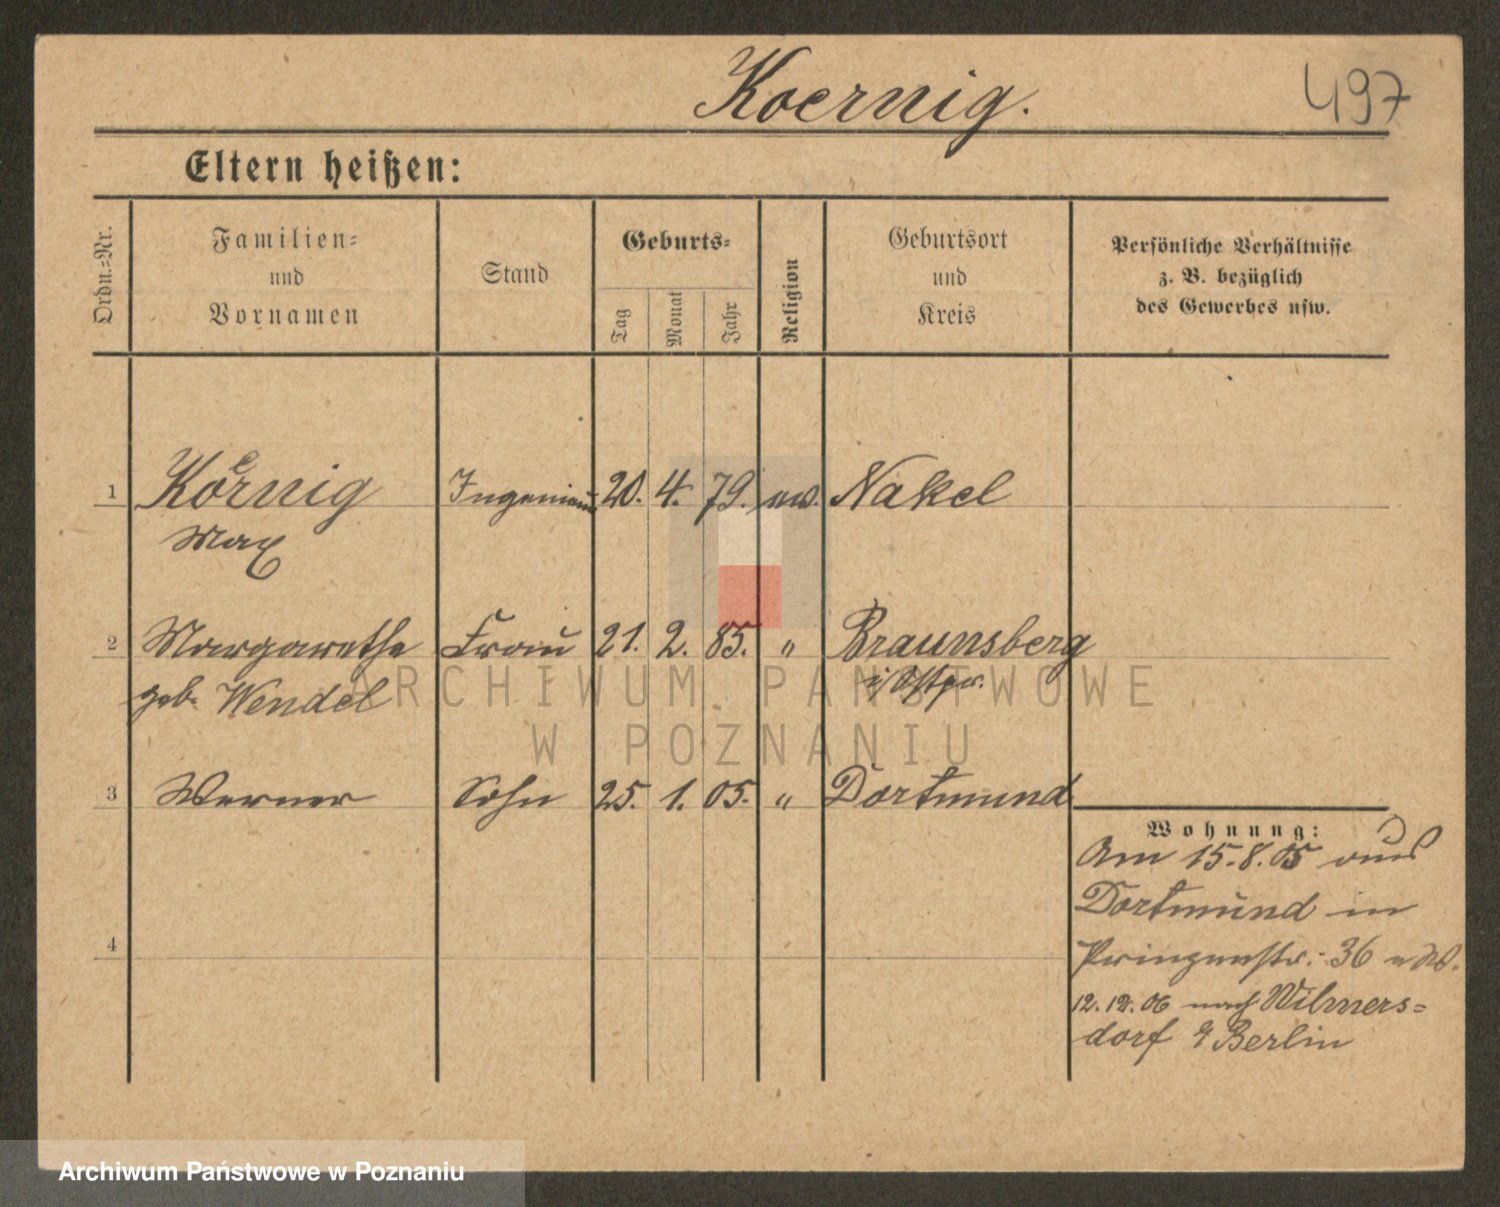 Koernig.
497
Eltern heißen:
Ordn.=Nr.
Familien=
und
Vornamen
Stand
Geburts=
Tag
Monat
Jahr
Religion
Geburtsort
und
Kreis
Persönliche Verhältnisse
z. B. bezüglich
des Gewerbes usw.
1 Koernig Ingenieur 20. 4. 79. ev. Nakel
Max
2 Margarethe Frau 21. 2. 85. " Braunsberg
geb. Wendel i/Ostpr.
3 Werner Sohn 25. 1. 05. " Dortmund
4
Wohnung:
Am 15.8.05 aus
Dortmund in
Prinzenstr. 36
12.12.06 nach Wilmers=
dorf Berlin
ARCHIWUM PAŃSTWOWE
W POZNANIU
Archiwum Państwowe w Poznaniu